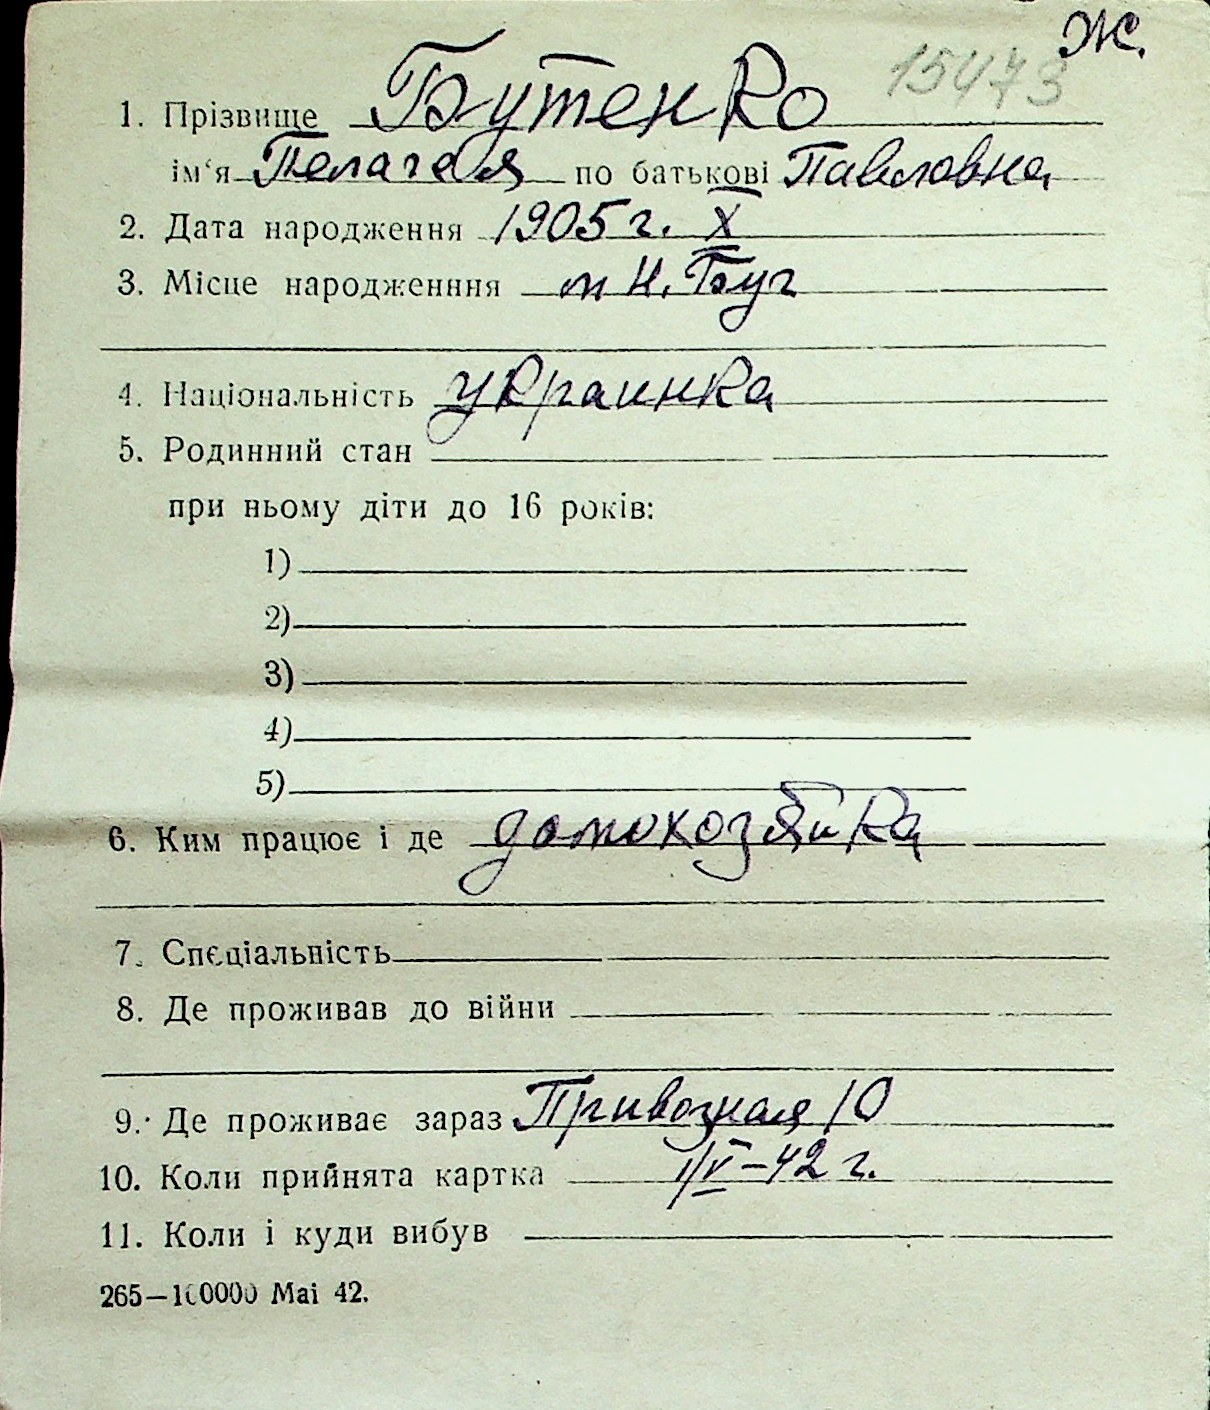 Ж.
15473
1. Прізвище Бутенко
ім'я Пелагея по батькові Павловна
2. Дата народження 1905 г. X
3. Місце народженння м Н. Буг
4. Національність украинка
5. Родинний стан
при ньому діти до 16 років:
1)
2)
3)
4)
5)
6. Ким працює і де домохозяйка
7. Спєціальність
8. Де проживав до війни
9. Де проживає зараз Привозная 10
10. Коли прийнята картка 1/V-42 г.
11. Коли і куди вибув
265—100000 Mai 42.